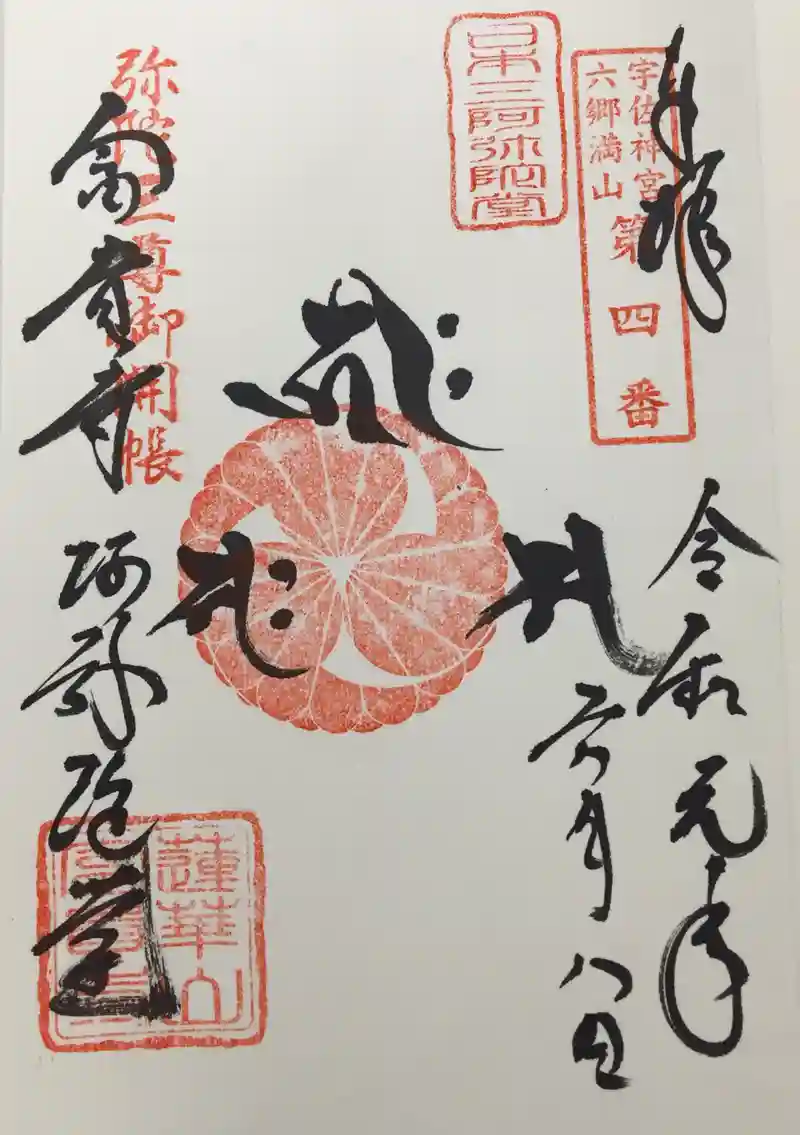 奉拝
宇佐神宮
六郷満山
第四番
日本三阿弥陀堂
令和元年
六月八日
𑖮𑖿𑖨𑖱𑖾
𑖭
𑖭𑖾
弥陀三尊御開帳
富貴寺
阿弥陀堂
蓮華山